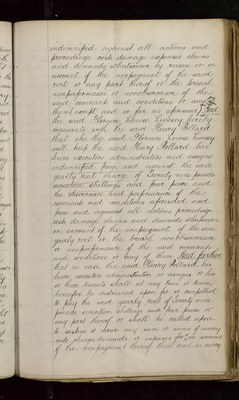 indemnified against all actions and
proceedings costs damage expenses claims
and demands whatsoever by reason or on
account of the nonpayment of the said
rent or any part thereof or the breach
nonperformance or nonobservance of the
said covenants and conditions or any of
them except and so far as aforesaid And
the said Florence Louisa Livesey hereby
covenants with the said Henry Pollard
that she the said Florence Louisa Livesey
will keep the said Henry Pollard his
heirs executors administrators and assigns
indemnified from and against the said
yearly rent charge of Twenty nine pounds
seventeen shillings and four pence and
the observance and performance of the
covenants and conditions aforesaid and
from and against all actions proceedings
costs damage claims and demands whatsoever
on account of the nonpayment of the same
yearly rent or the breach nonobservance
or nonperformance of the said covenants
and conditions or any of them And further
that in case the said Henry Pollard his
heirs executors administrators or assigns or his
or their tenants shall at any time or times
hereafter be distrained upon for or compelled
to pay the said yearly rent of Twenty nine
pounds seventeen shillings and four pence or
any part thereof or shall be called upon
to sustain or pay any sum or sums of money
costs charges demands or expenses for or on account
of the nonpayment thereof then and in every